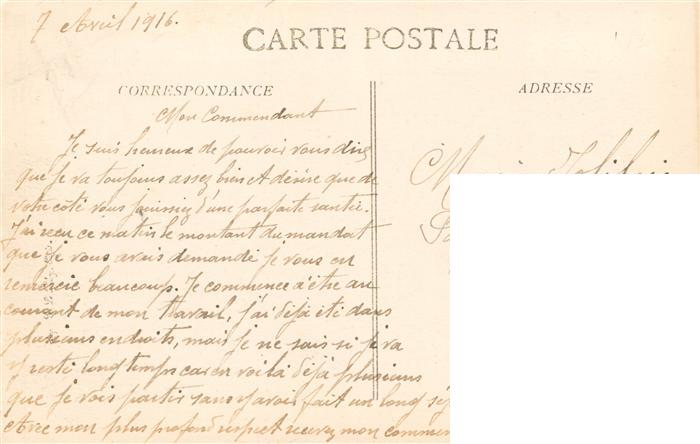 7 Avril 1916.
CARTE POSTALE
CORRESPONDANCE
ADRESSE
Mon Commendant
Je suis heureux de pouvoir vous dire
que je va toujours assez bien et désire que de
votre côté vous jouissiez d'une parfaite santée.
J'ai reçu ce matin le montant du mandat
que je vous avais demandé je vous en
remercie beaucoup. Je commence a être au
courant de mon travail, j'ai déjà été dans
plusieurs endroits, mais je ne sais si je va
y resté longtemps car en voilà déjà plusieurs
que je vois partir sans y avoir fait un long séj
Avec mon plus profond respect recevez mon commen